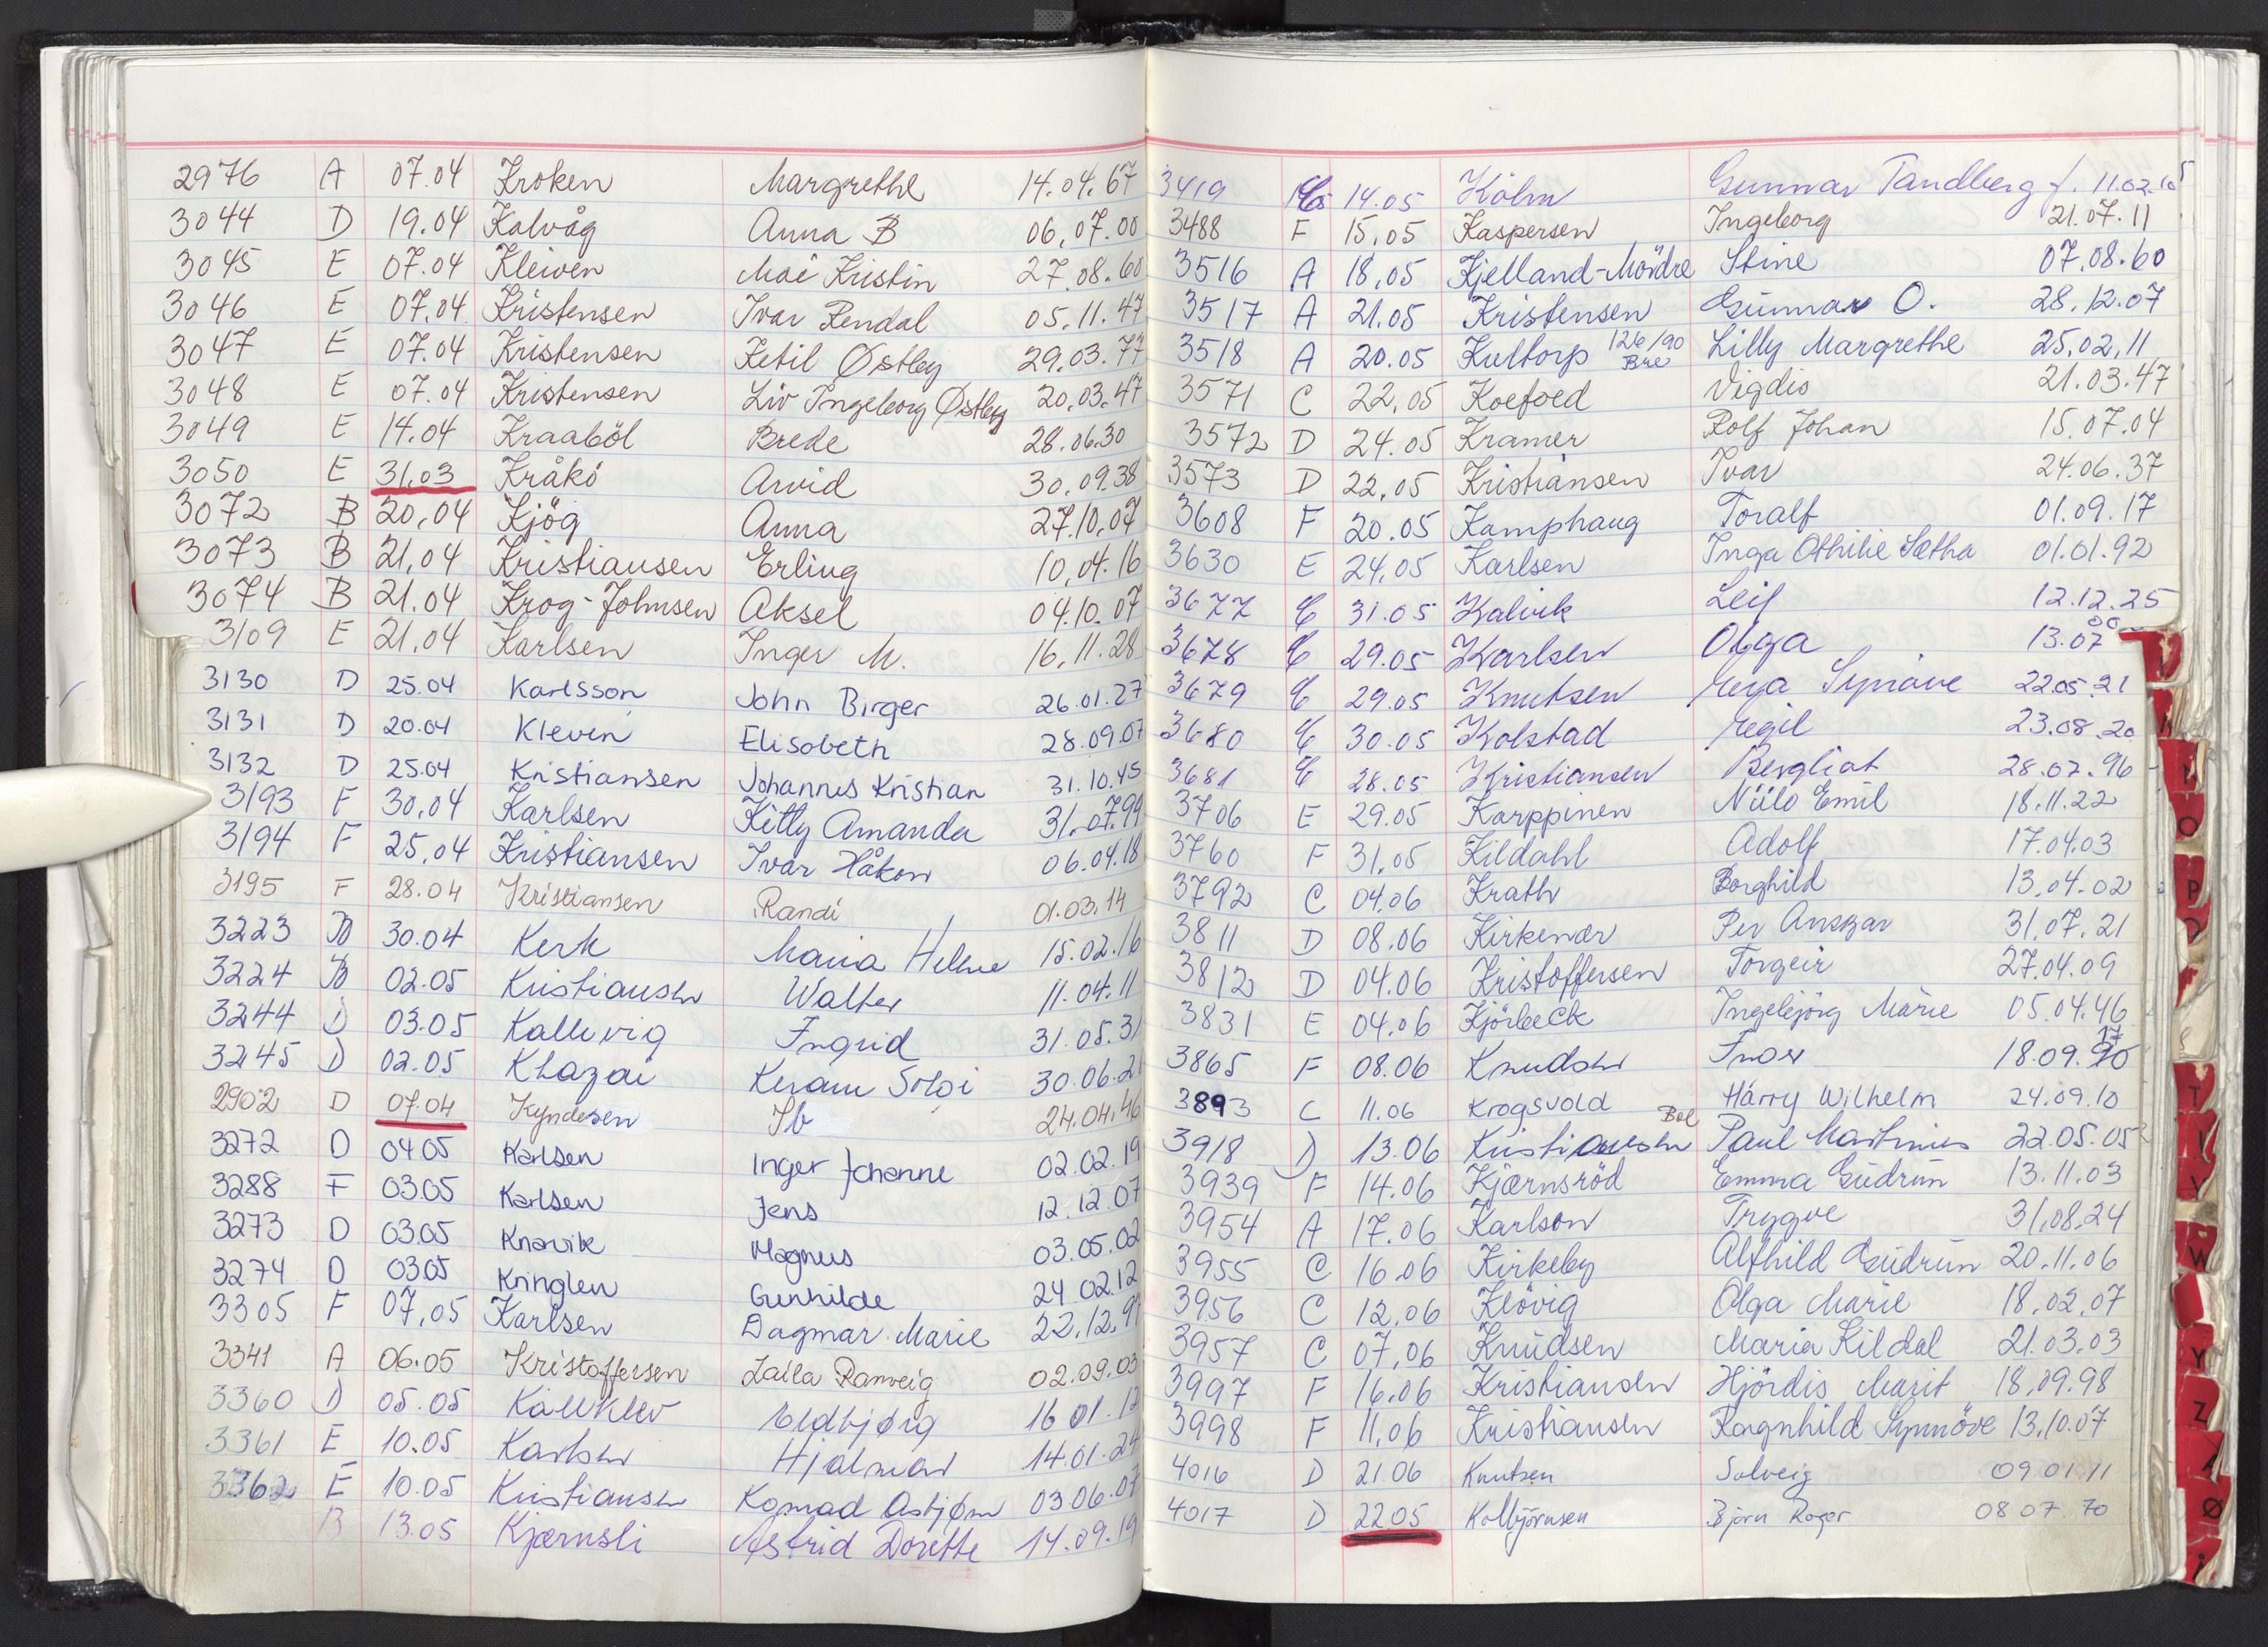 2976 A 07.04 Kroken Margrethe 14.04.67
3044 D 19.04 Kalvåg Anna B 06,07.00
3045 E 07.04 Kleiven Mai Kristin 27.08.60
3046 E 07.04 Kristensen Ivar Rendal 05.11.47
3047 E 07.04 Kristensen Ketil Østby 29.03.77
3048 E 07.04 Kristensen Liv Ingeborg Østby 20.03.47
3049 E 14.04 Kraaböl Brede 28.06.30
3050 E 31.03 Kråkö Arvid 30.09.38
3072 B 20.04 Kjög Anna 27.10.07
3073 B 21.04 Kristiansen Erling 10.04.16
3074 B 21.04 Krog-Johnsen Aksel 04.10.07
3109 E 21.04 Karlsen Inger M. 16.11.28
3130 D 25.04 Karlsson John Birger 26.01.27
3131 D 20.04 Kleven Elisabeth 28.09.07
3132 D 25.04 Kristiansen Johannes Kristian 31.10.45
3193 F 30.04 Karlsen Kitty Amanda 31.07.99
3194 F 25.04 Kristiansen Ivar Håkon 06.04.18
3195 F 28.04 Kristiansen Randi 01.03.14
3223 B 30.04 Kerk Maria Helene 15.02.16
3224 B 02.05 Kristiansen Walter 11.04.11
3244 D 03.05 Kallevig Ingrid 31.05.31
3245 D 02.05 Khazai Keram 30.06.21
2902 D 07.04 Kyndesen Ib 24.04.46
3272 D 04.05 Karlsen Inger Johanne 02.02.19
3288 F 03.05 Karlsen Jens 12.12.07
3273 D 03.05 Knarvik Magnus 03.05.02
3274 D 03.05 Kringlen Gunhilde 24.02.12
3305 F 07.05 Karlsen Dagmar Marie 22.12.9
3341 A 06.05 Kristoffersen Laila Ranveig 02.09.03
3360 D 05.05 Kålleklev Oldbjørg 16 01.12
3361 E 10.05 Karlsen Hjalmar 14.01.24
3362 E 10.05 Kristiansen Konrad Asbjørn 03.06.07
B 13.05 Kjærnsli Astrid Dorette 14.09.19
3419 C 14.05 Kölm Gunnar Tandberg f. 11.02.15
3488 F 15.05 Kaspersen Ingeborg 21.07.11
3516 A 18.05 Kjelland-Mördre Stine 07.08.60
3517 A 21.05 Kristensen Gunnar O. 28.12.07
3518 A 20.05 Kultorp 126/90 Bre Lilly Margrethe 25.02.11
3571 C 22.05 Koefoed Vigdis 21.03.47
3572 D 24.05 Kramer Rolf Johan 15.07.04
3573 D 22.05 Kristiansen Ivar 24.06.37
3608 F 20.05 Kamphaug Toralf 01.09.17
3630 E 24.05 Karlsen Inga Othilie Sætha 01.01.92
3677 C 31.05 Kalvik Leif 12.12.25
3678 C 29.05 Karlsen Olga 13.07 00
3679 C 29.05 Knutsen Eva Synnøve 22.05.21
3680 C 30.05 Kolstad Egil 23.08.20
3681 C 28.05 Kristiansen Bergliot 28.07.96
3706 E 29.05 Karppinen Niilo Emil 18.11.22
3760 F 31.05 Kildahl Adolf 17.04.03
3792 C 04.06 Krath Borghild 13.04.02
3811 D 08.06 Kirkenær Per Ansgar 31.07.21
3812 D 04.06 Kristoffersen Torgeir 27.04.09
3831 E 04.06 Kjörbeck Ingebjörg Marie 05.04.46
3865 F 08.06 Knudsen 18.09. 17
3893 C 11.06 Krogsvold Harry Wilhelm 24.09.10
3918 D 13.06 Kristiansen Bol Paul Martinius 22.05.05
3939 F 14.06 Kjærnsröd Emma Gudrun 13.11.03
3954 A 17.06 Karlson Trygve 31.08.24
3955 C 16.06 Kirkeby Alfhild Gudrun 20.11.06
3956 C 12.06 Klövig Olga Marie 18.02.07
3957 C 07.06 Knudsen Maria Kildal 21.03.03
3997 F 16.06 Kristiansen Hjördis Marit 18.09.98
3998 F 11.06 Kristiansen Ragnhild Synnöve 13.10.07
4016 D 21.06 Knutsen Solveig 09.01.11
4017 D 22.05 Kolbjörnsen Bjørn Roger 08 07. 70
T
V
W
Y
Z
Ø